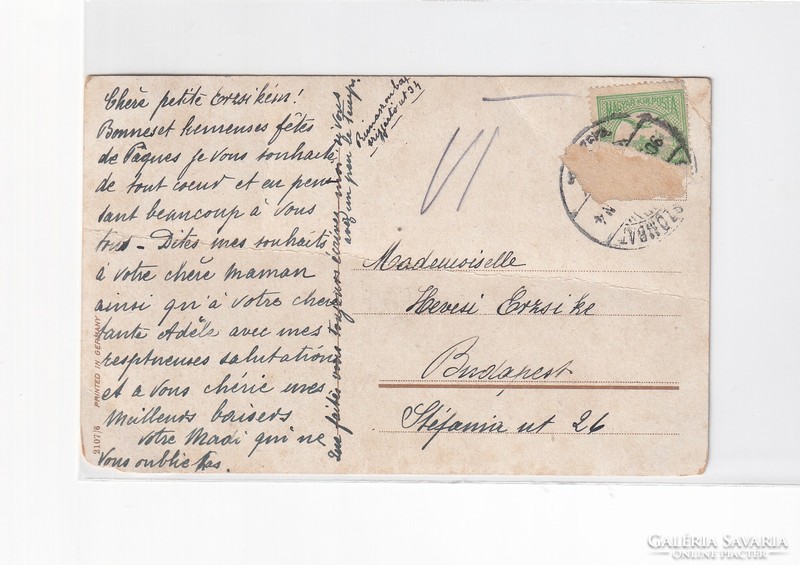 Chère petite Erzsikém!
Bonnes et heureuses fêtes
de Pâques je vous souhaite
de tout coeur et en pen
sant beaucoup à vous
tous – Dites mes souhaits
à votre chère maman
ainsi qu'à votre chère
tante Adèle avec mes
respctueuses salutations
et à vous chérie mes
meilleurs baisers
votre Madi qui ne
vous oublie pas.
Que faites vous toujours écrivez moi si vous
avez un peu le temps.
Rimaszombat
út 34
VI
MAGYAR KIR. POSTA
Mademoiselle
Hevesi Erzsike
Budapest
Stefánia út 26
2107/6 PRINTED IN GERMANY
GALÉRIA SAVARIA
ONLINE PIACTÉR